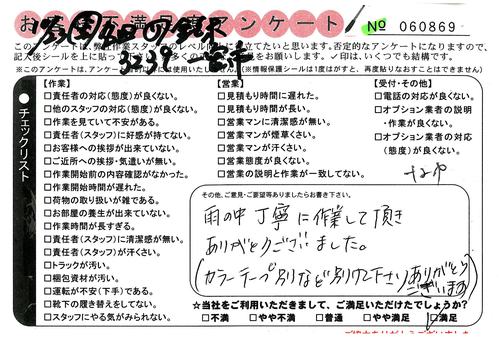 お客様不満足度アンケート
No 060869
このアンケートは、弊社作業スタッフのレベル向上に役立てたいと思います。否定的なアンケートになりますので、
※このアンケートは、アンケート
(※情報保護シールは1度はがすと、再度貼りなおすことはできません)
チェックリスト
【作業】
□責任者の対応(態度)が良くない。
□他のスタッフの対応(態度)が良くない。
□作業を見ていて不安がある。
□責任者(スタッフ)に好感が持てない。
□お客様への挨拶が出来ていない。
□ご近所への挨拶・気遣いが無い。
□作業開始前の内容確認がなかった。
□作業開始時間が遅れた。
□荷物の取り扱いが雑である。
□お部屋の養生が出来ていない。
□作業時間が長すぎる。
□責任者(スタッフ)に清潔感が無い。
□責任者(スタッフ)が汗くさい。
□トラックが汚い。
□梱包資材が汚い。
□運転が不安(下手)である。
□靴下の履き替えをしてない。
□スタッフにやる気がみられない。
【営業】
□見積もり時間に遅れた。
□見積もり時間が長い。
□営業マンに清潔感が無い。
□営業マンが煙草くさい。
□営業マンが汗くさい。
□営業態度が良くない。
□営業の説明と作業が一致してない。
【受付・その他】
□電話の対応が良くない。
□オプション業者の説明
・作業が良くない。
□オプション業者の対応
(態度)が良くない。
その他、ご意見・ご要望等ありましたらお書き下さい。
雨の中丁寧に作業して頂き
ありがとうございました。
(カラーテープ別など別けて下さりありがとう
ございます)
☆当社をご利用いただきまして、ご満足いただけたでしょうか?
□不満 □やや不満 □普通 □やや満足 □満足